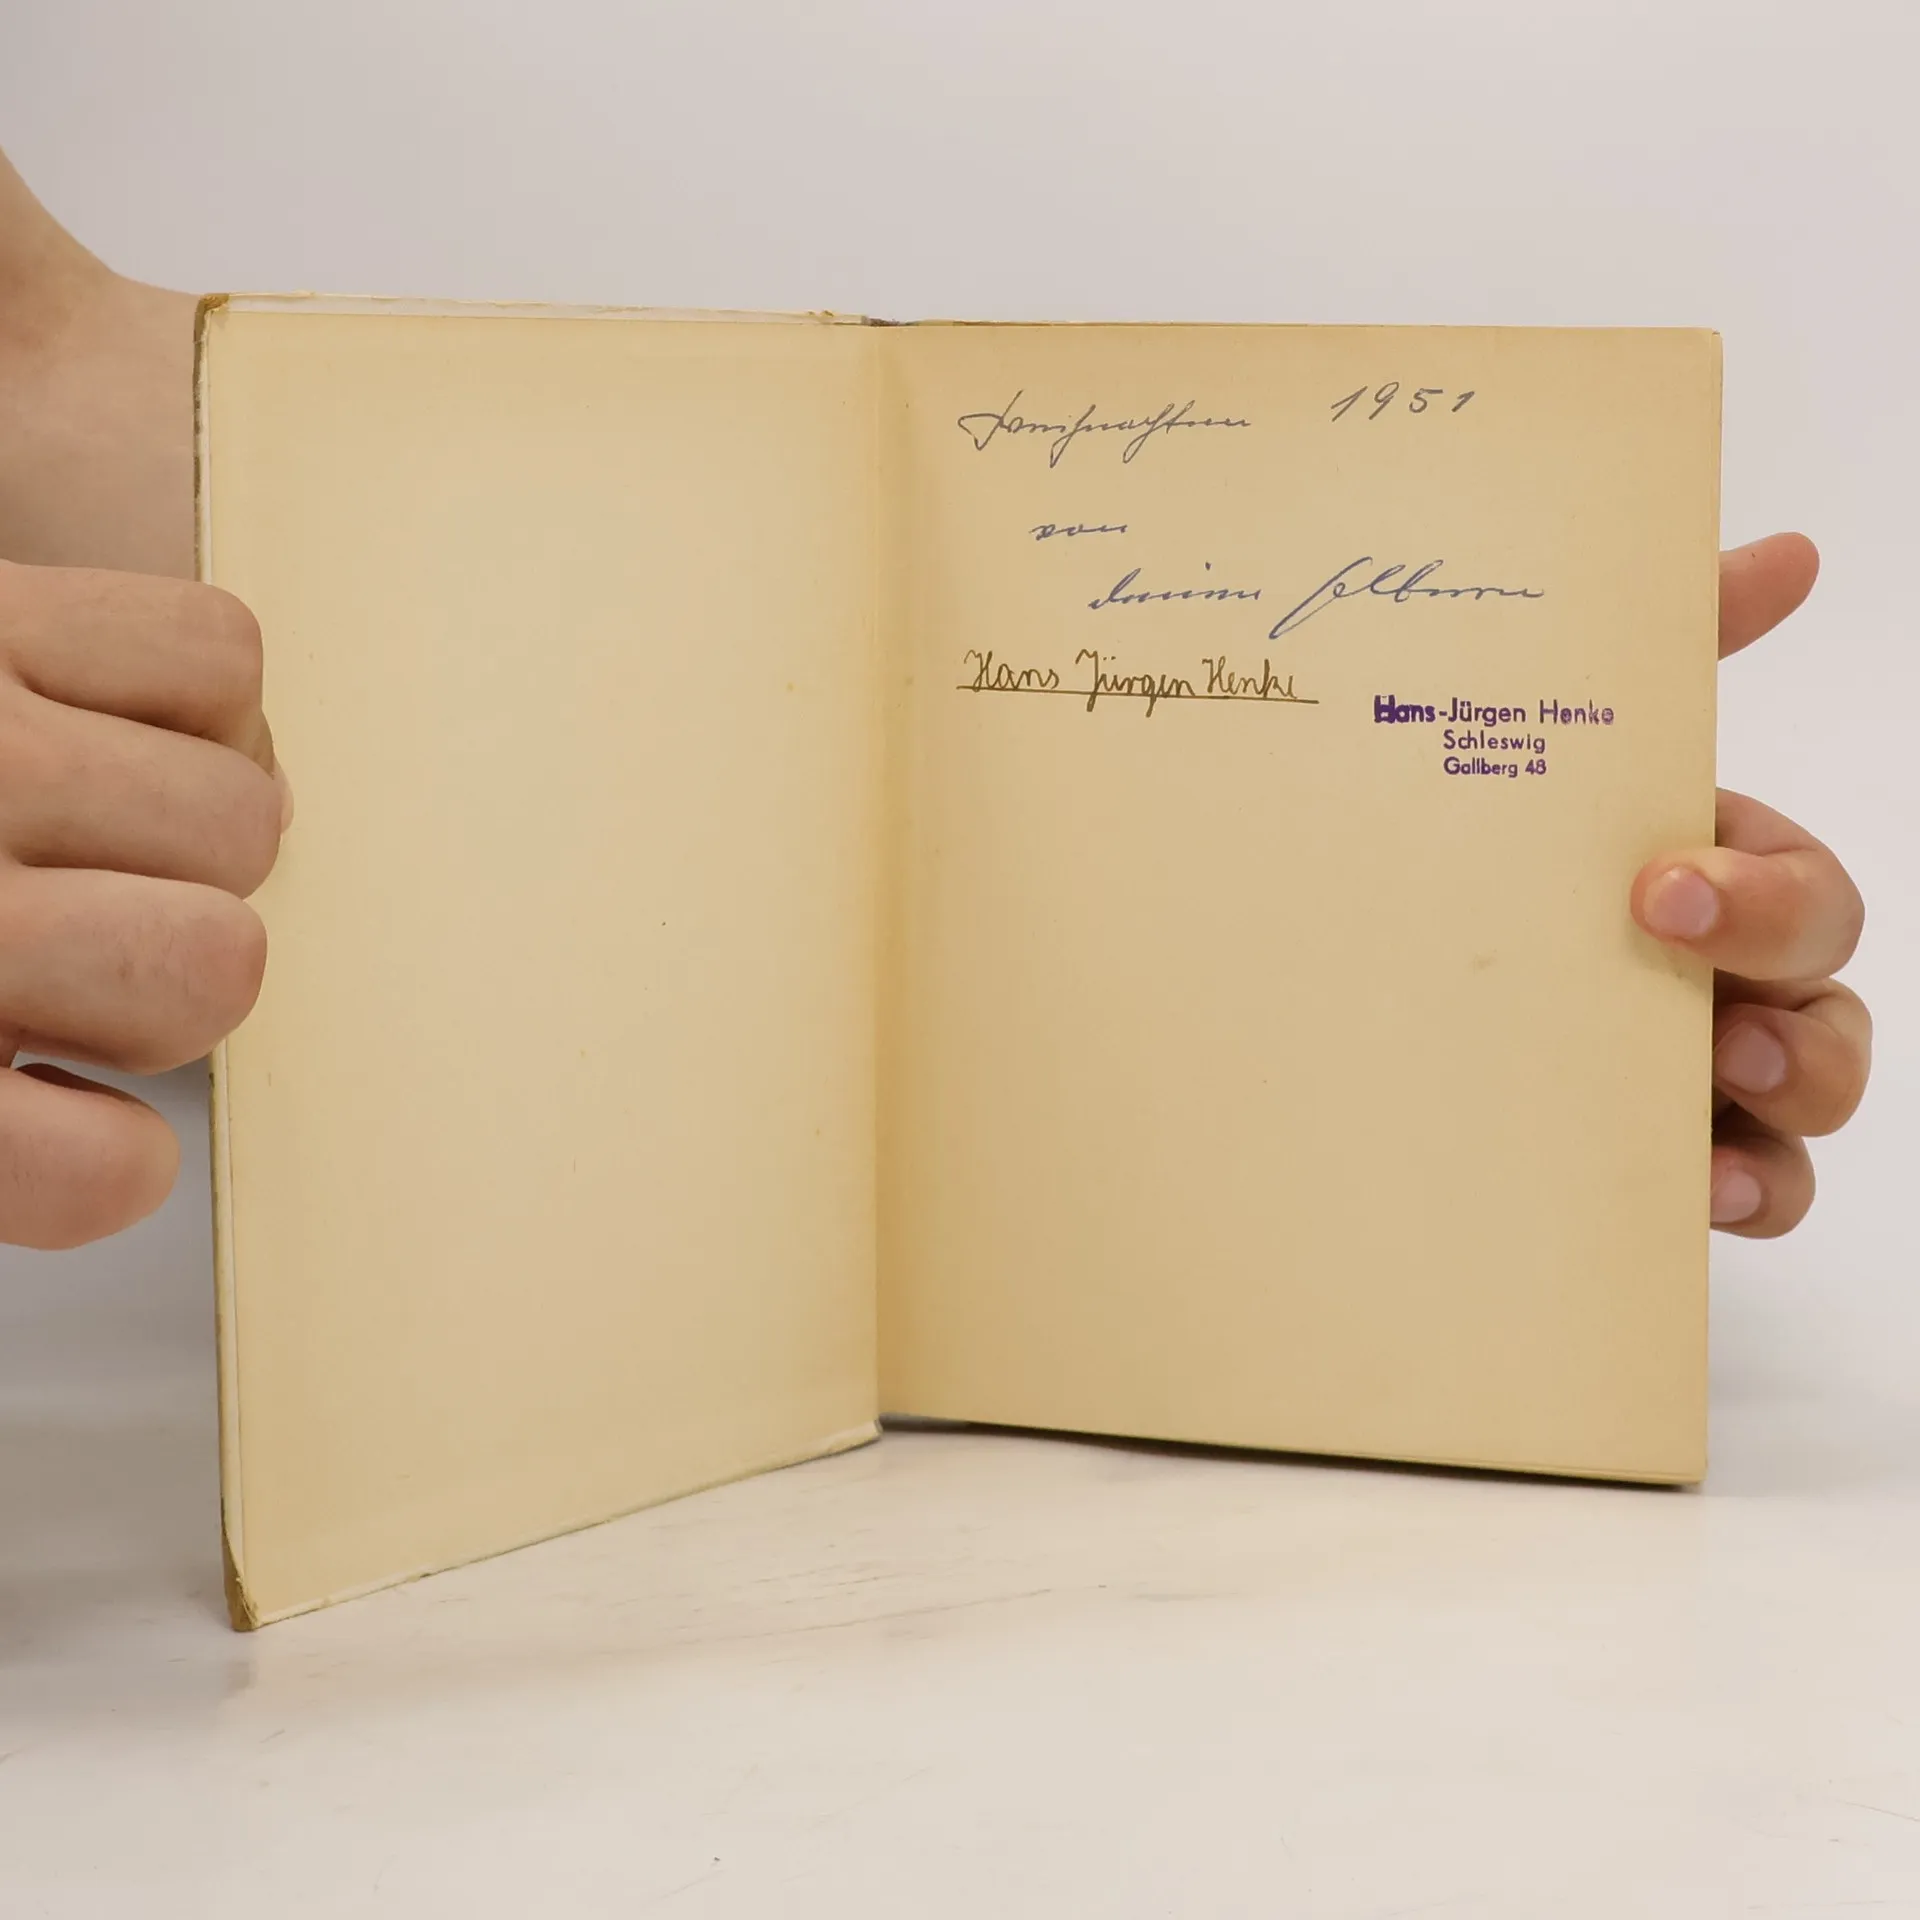 Weihnachten 1951
von
deinen Eltern
Hans Jürgen Henke
Hans-Jürgen Henke
Schleswig
Gallberg 48